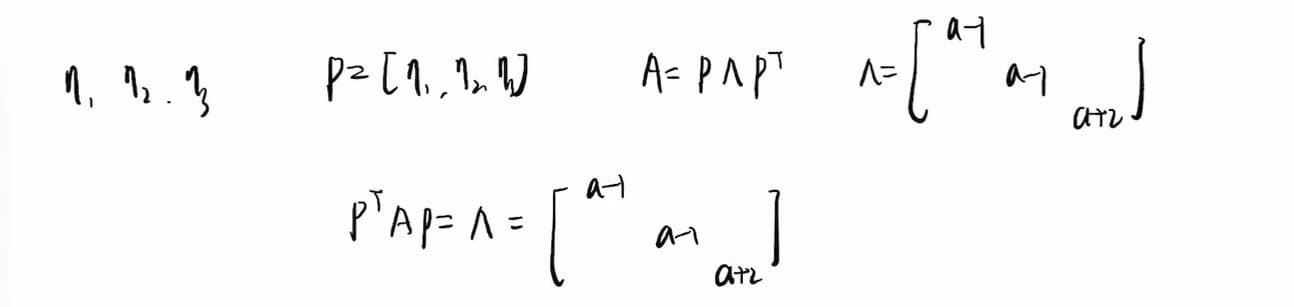 η₁ η₂. η₃ P=[η₁, η₂, η₃] A=PΛPᵀ Λ=[a-1 a-1 a+2]
PᵀAP=Λ=[a-1 a-1 a+2]